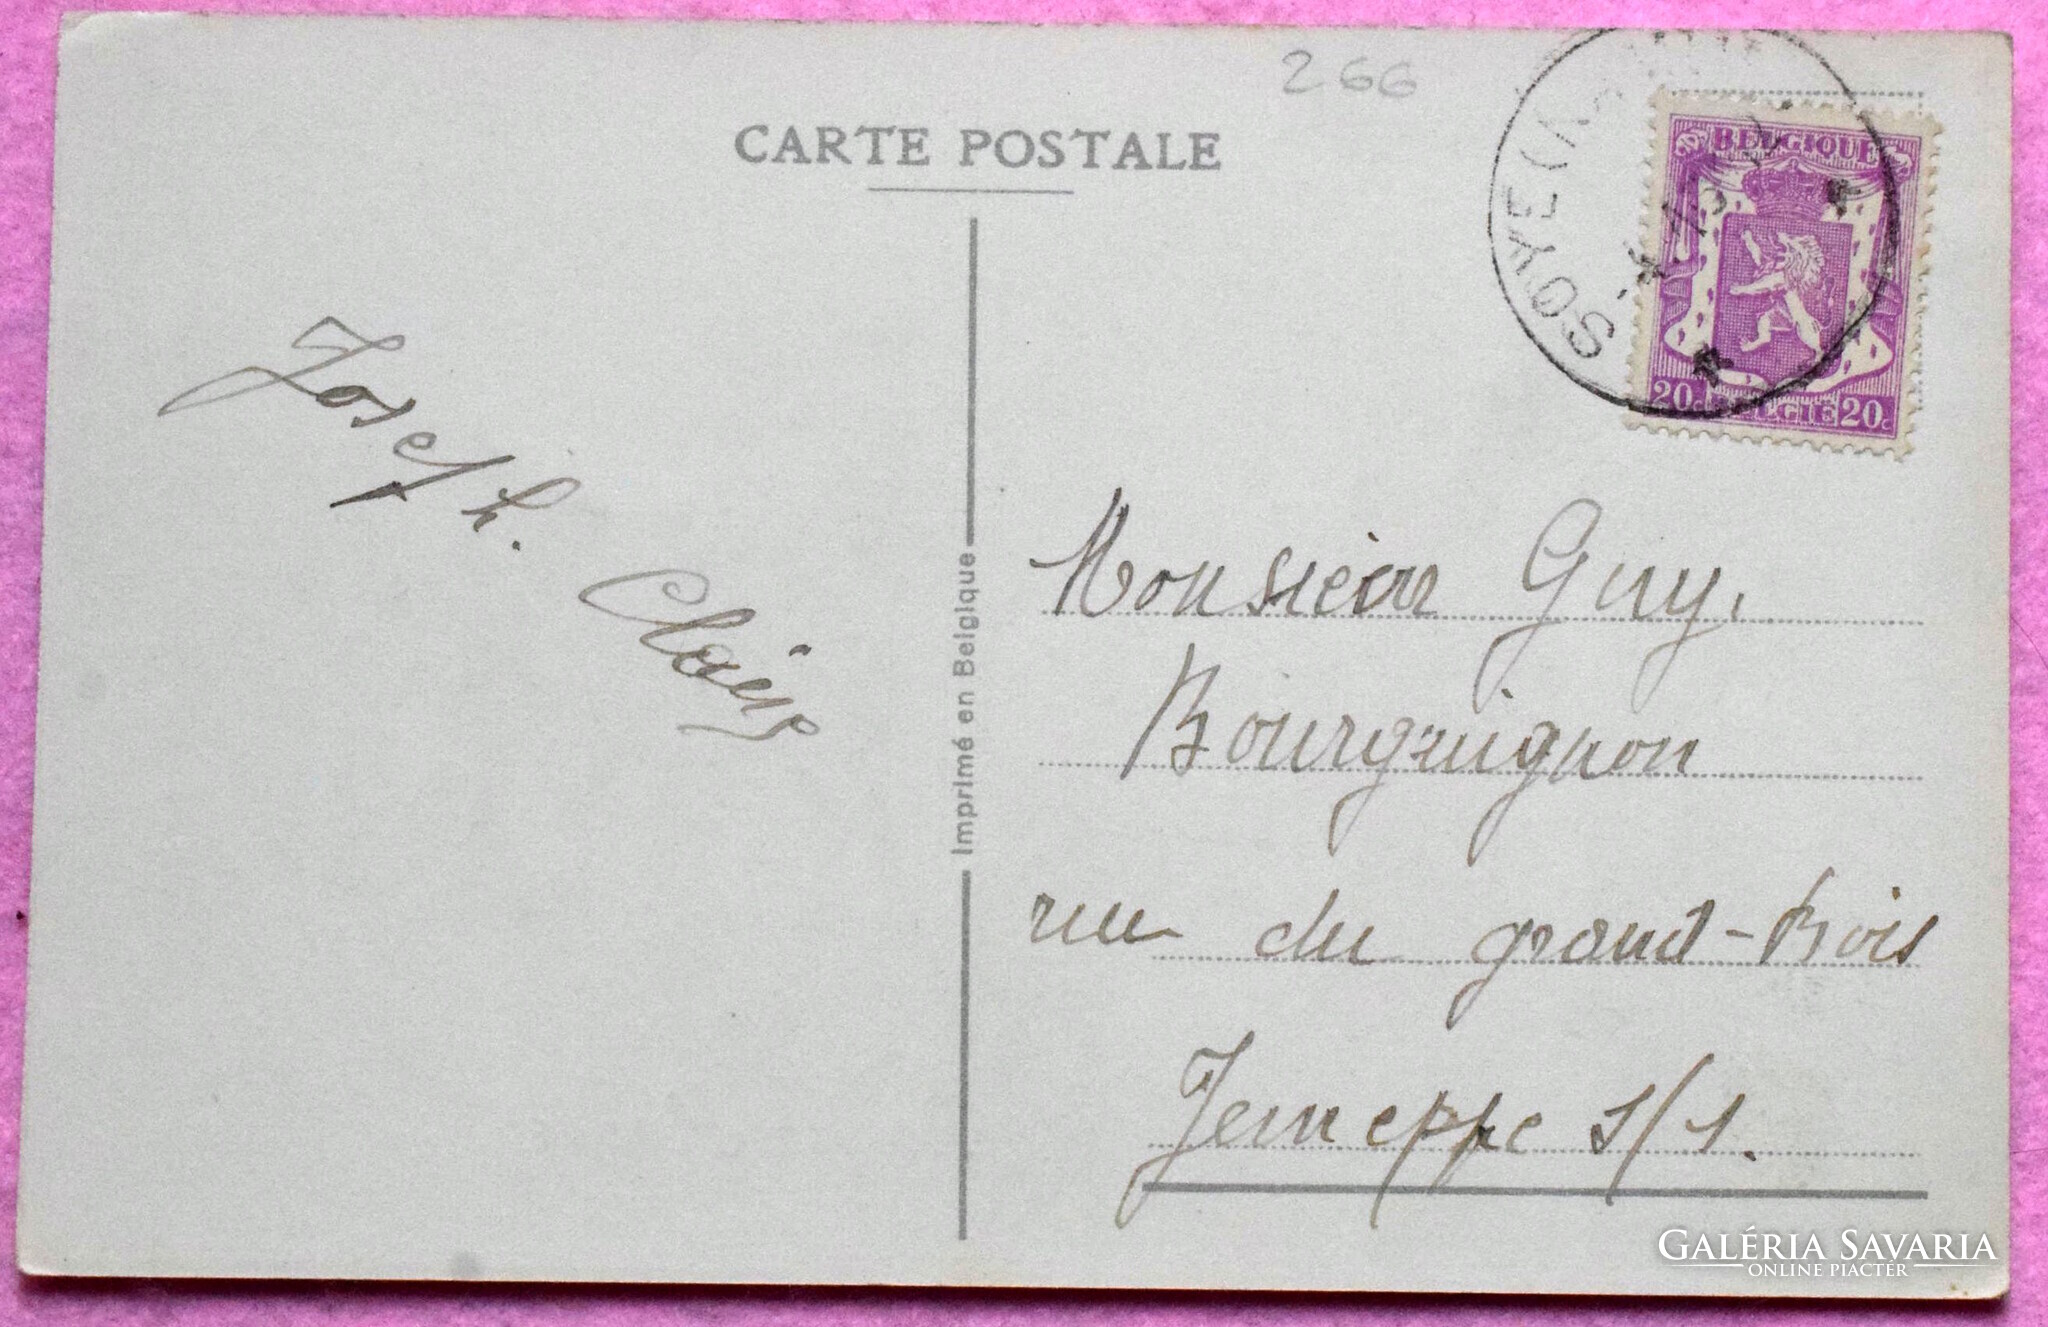 266
CARTE POSTALE
SOYE
BELGIQUE
20c BELGIE 20c
Joseph. Claeys
Imprimé en Belgique
Monsieur Guy.
Bourguignon
rue du grand-Bois
Jemeppe s/s.
GALÉRIA SAVARIA
ONLINE PIACTÉR